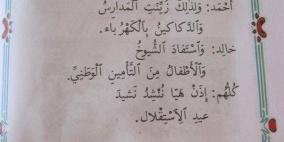 أَحْمَد: وَلِذٰلِكَ زُيِّنَتِ الْمَدَارِسُ
وَالدَّكَاكِينُ بِالْكَهْرُبَاء.
خالِد: وَاسْتَفادَ الشُّيوخُ
وَالْأَطْفالُ مِنَ التَّأْمِينِ الْوَطَنِيِّ.
كُلُّهُم: إِذَنْ هَيَّا نُنْشِدُ نَشيدَ
عيدِ الِاسْتِقْلال.